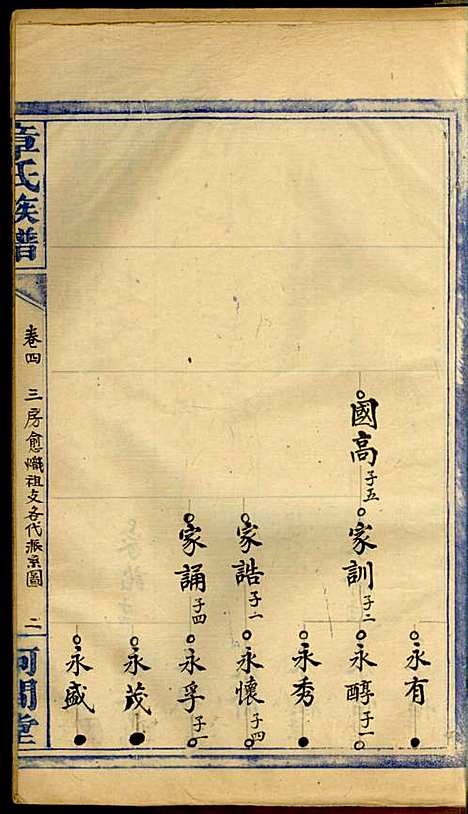 國高 子五
家訓 子二
家誥 子一
家誦 子四
永有
永醇 子一
永秀
永懷 子四
永孚 子一
永茂
永盛
章氏族譜
卷四
三房愈熾祖支各代派系圖
二
河間堂